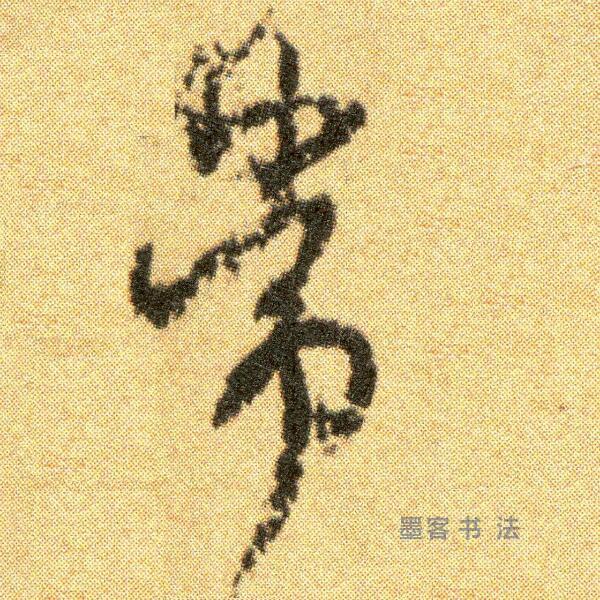 帶
墨客书法